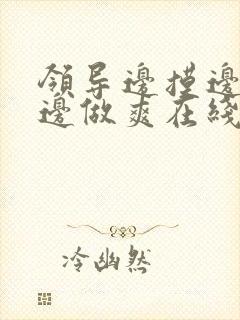 領导邊摸邊
邊做爽在綫
冷幽然